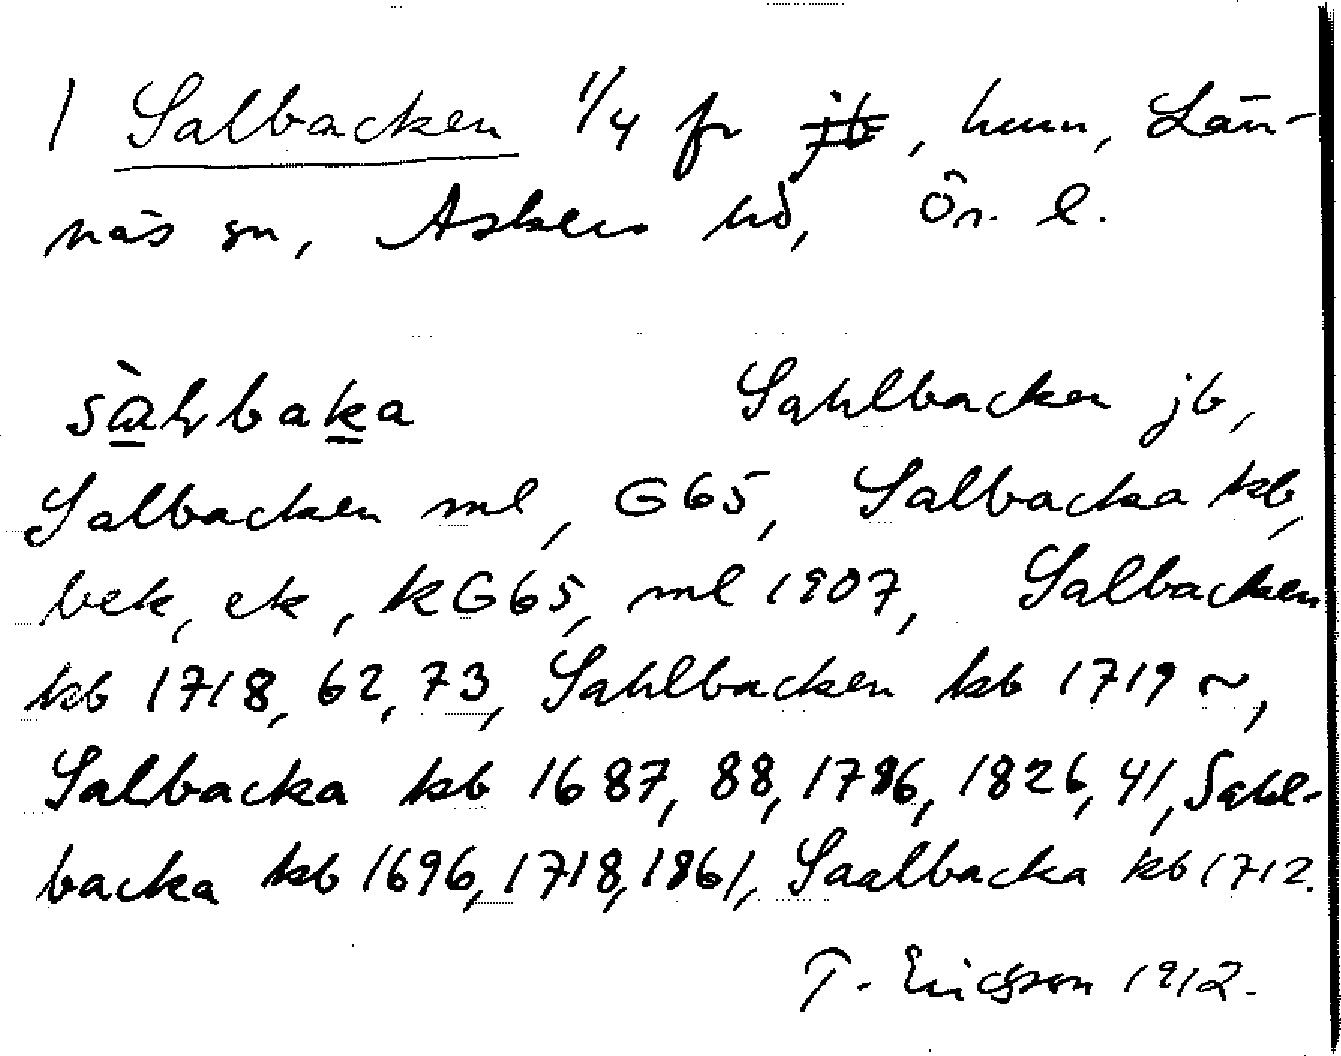 | Salbacken 1/4 fr jb, hmn, Län-
näs sn, Askers hd, Ör. l.
sàlbaka Sahlbacken jb,
Salbacken ml, G65, Salbacka kb,
bek, ek, kG65, ml 1907, Salbacken
kb 1718, 62, 73, Sahlbacken kb 1719 ~,
Salbacka kb 1687, 88, 1786, 1826, 41, Sahl-
backa kb 1696, 1718, 1861, Saalbacka kb 1712.
T. Ericsson 1912.